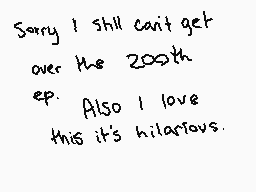 Sorry I still can't get
over the 200th
ep. Also I love
this it's hilarious.